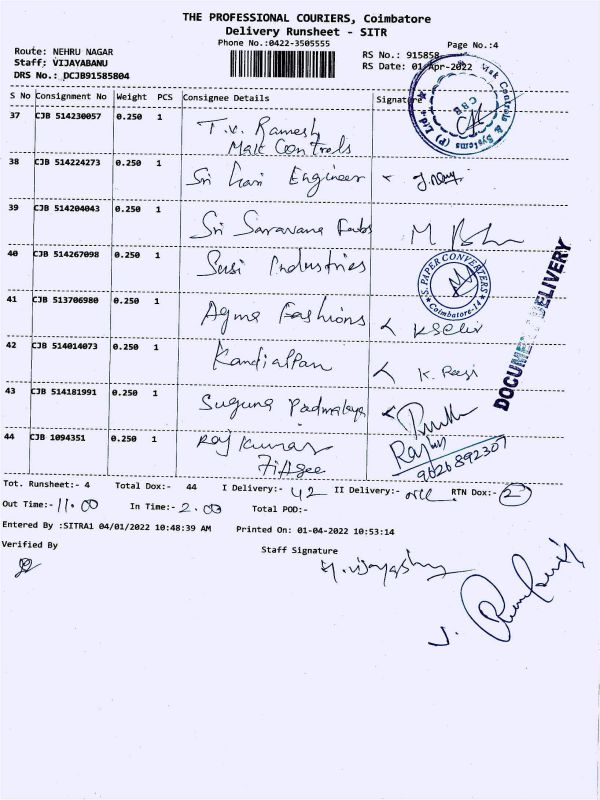 THE PROFESSIONAL COURIERS, Coimbatore
Delivery Runsheet - SITR
Phone No.:0422-3505555
Page No.:4
Route: NEHRU NAGAR
RS No.: 915858
Staff: VIJAYABANU
RS Date: 01-Apr-2022
DRS No.: DCJB91585804
S No Consignment No Weight PCS Consignee Details Signature
37 CJB 514230057 0.250 1 T.V. Ramesh
Mak Controls
38 CJB 514224273 0.250 1 Sri Hari Engineer
39 CJB 514204043 0.250 1 Sri Saravana Fabs
40 CJB 514267098 0.250 1 Susi Industries
41 CJB 513706980 0.250 1 Agme Fashions K Selvi
42 CJB 514014073 0.250 1 Kandiappan K. Rasi
43 CJB 514181991 0.250 1 Suguna Padmalaya
44 CJB 1094351 0.250 1 Raj Kumar
Fitgee
9626892307
Mak Controls & Systems (P) Ltd
CBE
S. PAPER CONVERTERS
Coimbatore-14
DOCUMENT DELIVERY
Tot. Runsheet:- 4 Total Dox:- 44 I Delivery:- 42 II Delivery:- nil RTN Dox:- 2
Out Time:- 11.00 In Time:- 2.00 Total POD:-
Entered By :SITRA1 04/01/2022 10:48:39 AM Printed On: 01-04-2022 10:53:14
Verified By Staff Signature